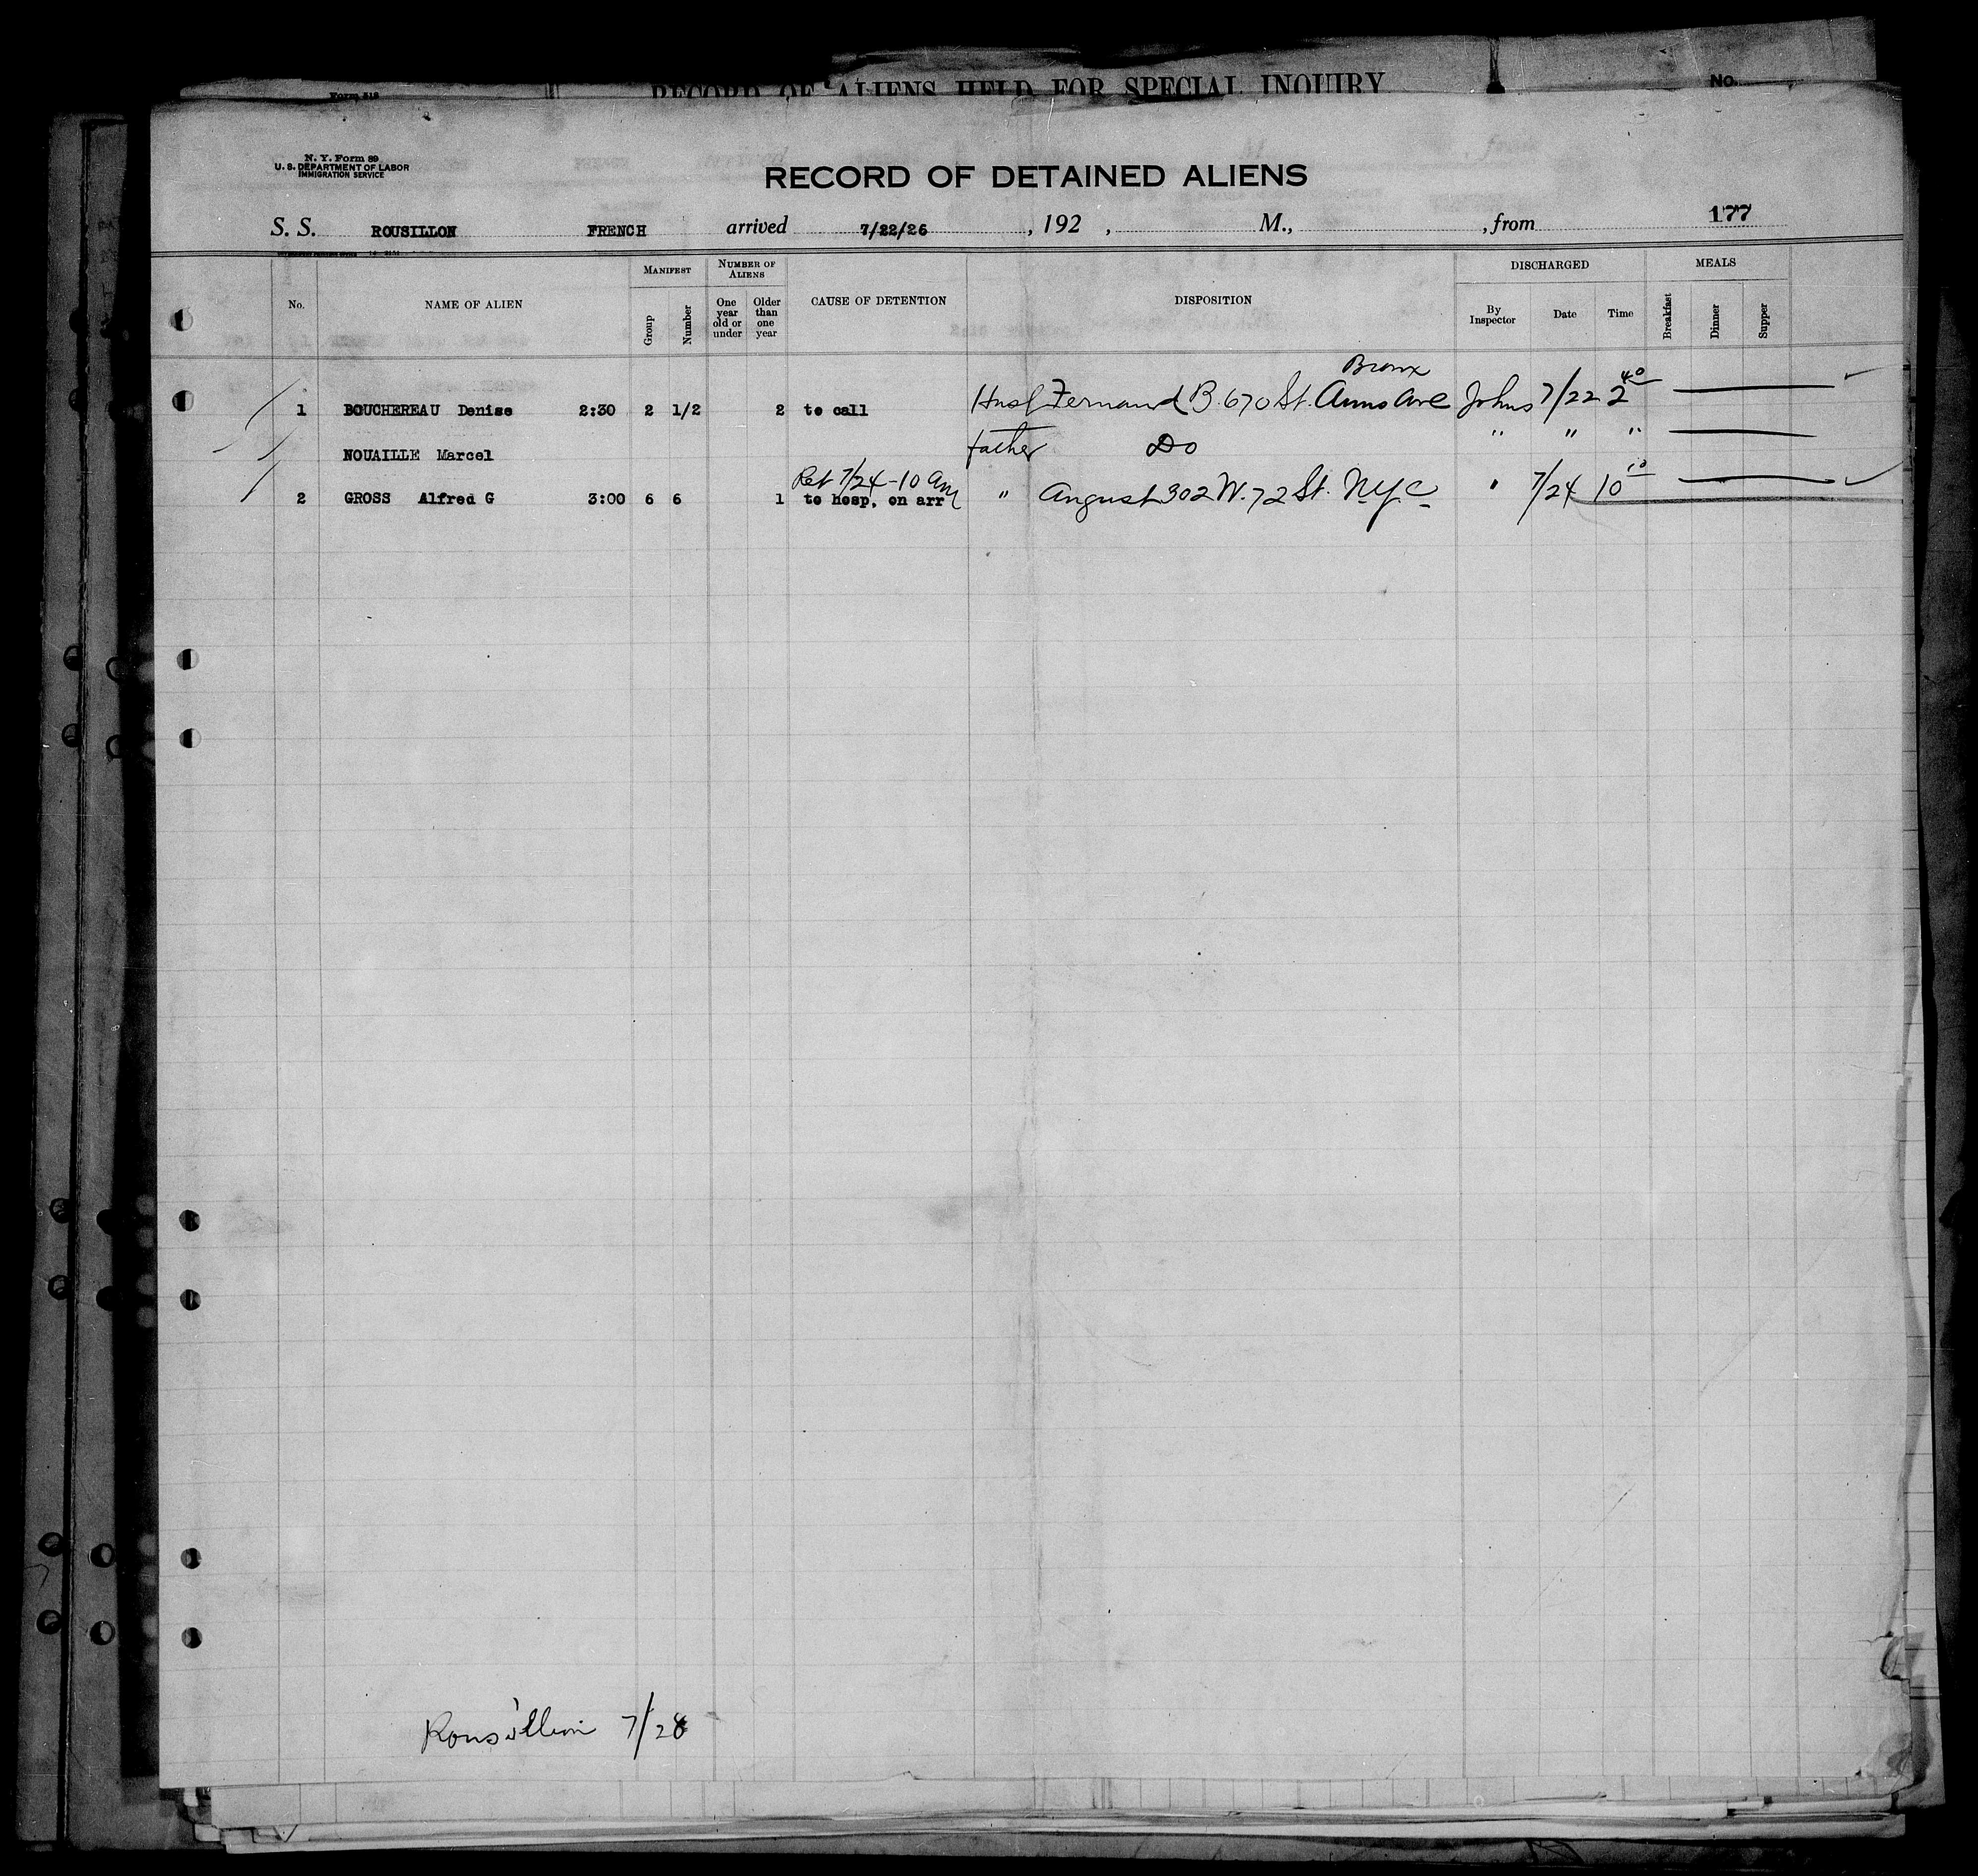 RECORD OF ALIENS HELD FOR SPECIAL INQUIRY
No.
Form 518
N. Y. Form 89
U. S. DEPARTMENT OF LABOR
IMMIGRATION SERVICE
RECORD OF DETAINED ALIENS
177
S. S. ROUSILLON FRENCH arrived 7/22/26 , 192 , M., , from
No. NAME OF ALIEN MANIFEST Group Number NUMBER OF ALIENS One year old or under Older than one year CAUSE OF DETENTION DISPOSITION DISCHARGED By Inspector Date Time MEALS Breakfast Dinner Supper
Bronx
1 BOUCHEREAU Denise 2:30 2 1/2 2 to call Husb Fernand B. 670 St. Anns Ave Johns 7/22 2 40
NOUAILLE Marcel father Do " " "
Ret 7/24-10 Am
2 GROSS Alfred G 3:00 6 6 1 to hosp. on arr " August 302 W. 72 St. N.Y.C. " 7/24 10 10
Rousillion 7/28